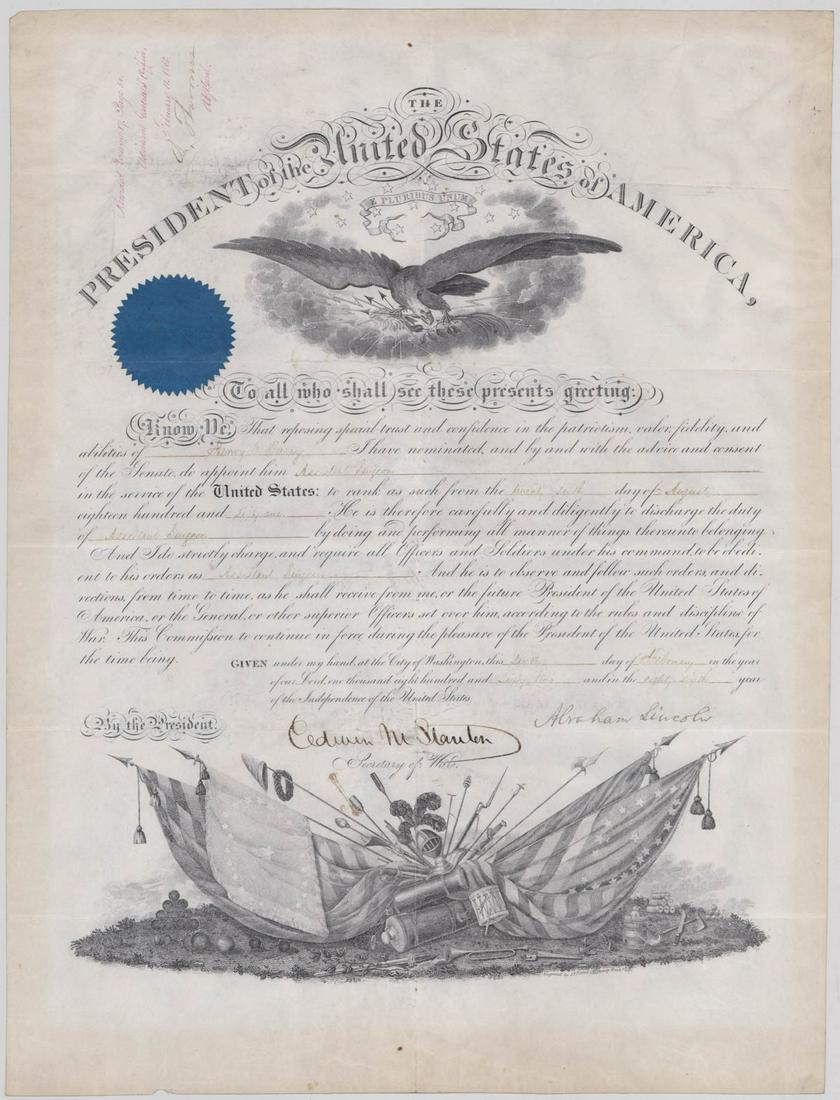 THE
United States
PRESIDENT of the of AMERICA,
E PLURIBUS UNUM
To all who shall see these presents greeting:
Know Ye, That reposing special trust and confidence in the patriotism, valor, fidelity, and
abilities of Henry I have nominated, and by and with the advice and consent
of the Senate, do appoint him Assistant Surgeon
in the service of the United States: to rank as such from the day of August
eighteen hundred and sixty one. He is therefore carefully and diligently to discharge the duty
of Assistant Surgeon by doing and performing all manner of things thereunto belonging.
And I do strictly charge, and require all Officers and Soldiers under his command, to be obedi-
ent to his orders as Assistant Surgeon. And he is to observe and follow such orders, and di-
rections, from time to time, as he shall receive from me, or the future President of the United States of
America, or the General, or other superior Officers set over him, according to the rules and discipline of
War. This Commission to continue in force during the pleasure of the President of the United States, for
the time being.
GIVEN under my hand, at the City of Washington, this day of February in the year
of our Lord, one thousand eight hundred and sixty two and in the eighty sixth year
of the Independence of the United States.
By the President
Abraham Lincoln
Edwin M Stanton
Secretary of War.